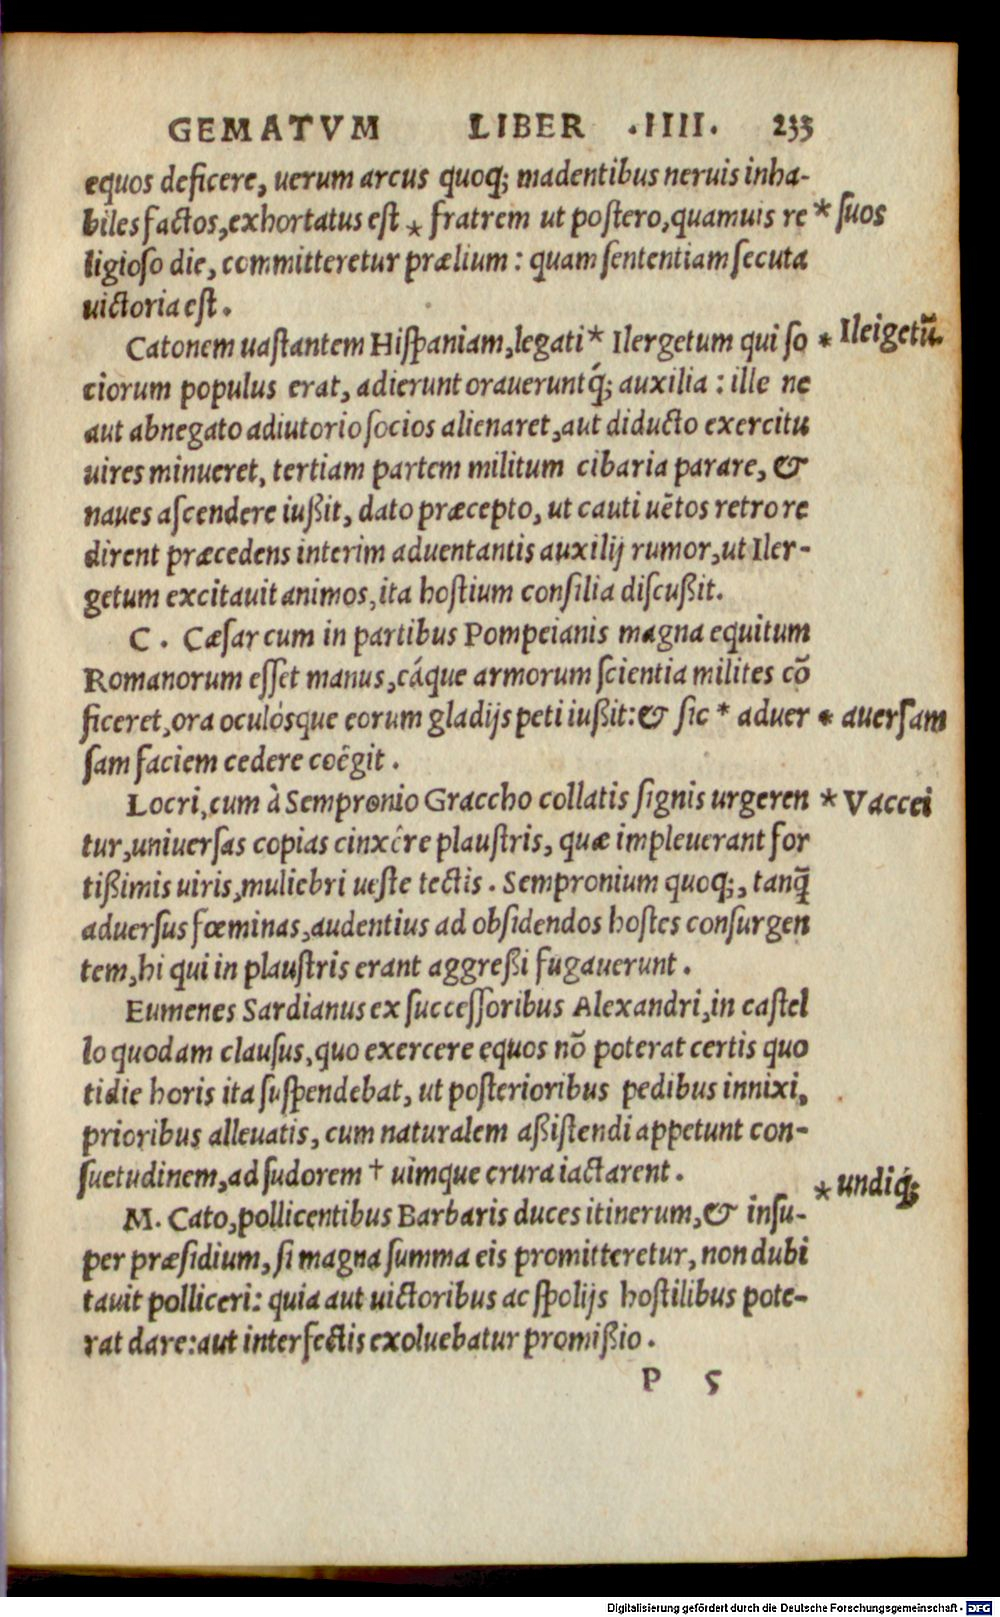 GEMATVM LIBER .IIII. 233
equos deficere, uerum arcus quoq; madentibus neruis inha-
biles factos, exhortatus est * fratrem ut postero, quamuis re * suos
ligioso die, committeretur prælium : quam sententiam secuta
uictoria est .
Catonem uastantem Hispaniam, legati * Ilergetum qui so * Ileigetū.
ciorum populus erat, adierunt orauerunt q́; auxilia : ille ne
aut abnegato adiutorio socios alienaret, aut diducto exercitu
uires minueret, tertiam partem militum cibaria parare, &
naues ascendere iußit, dato præcepto, ut cauti uẽtos retro re
dirent præcedens interim aduentantis auxilij rumor, ut Iler-
getum excitauit animos, ita hostium consilia discußit.
C . Cæsar cum in partibus Pompeianis magna equitum
Romanorum esset manus, cáque armorum scientia milites cō
ficeret, ora oculósque eorum gladijs peti iußit: & sic * aduer * auersam
sam faciem cedere coëgit .
Locri, cum à Sempronio Graccho collatis signis urgeren * Vaccei
tur, uniuersas copias cinxêre plaustris, quæ impleuerant for
tißimis uiris, muliebri ueste tectis . Sempronium quoq;, tanq̃
aduersus fœminas, audentius ad obsidendos hostes consurgen
tem, hi qui in plaustris erant aggreßi fugauerunt .
Eumenes Sardianus ex successoribus Alexandri, in castel
lo quodam clausus, quo exercere equos nō poterat certis quo
tidie horis ita suspendebat, ut posterioribus pedibus innixi,
prioribus alleuatis, cum naturalem aßistendi appetunt con-
suetudinem, ad sudorem † uimque crura iactarent .
* undiq́;
M. Cato, pollicentibus Barbaris duces itinerum, & insu-
per præsidium, si magna summa eis promitteretur, non dubi
tauit polliceri: quia aut uictoribus ac spolijs hostilibus pote-
rat dare: aut interfectis exoluebatur promißio .
P 5
Digitalisierung gefördert durch die Deutsche Forschungsgemeinschaft - DFG